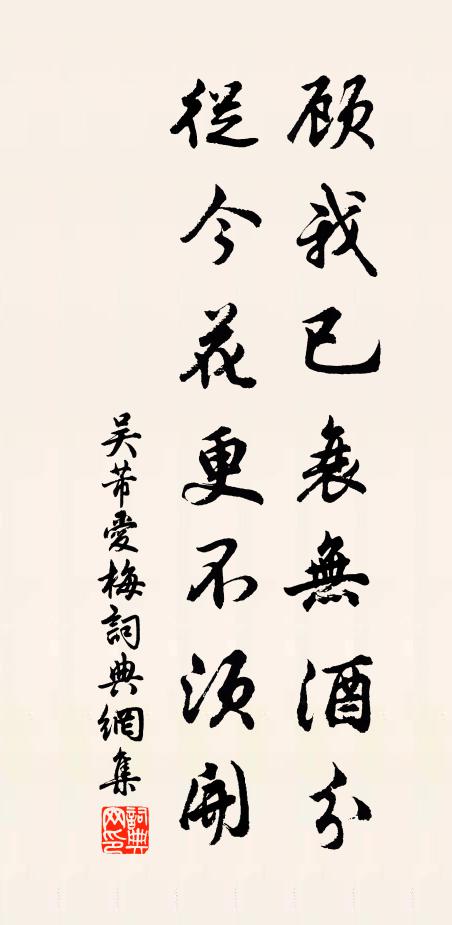 顾我已衰無酒分
從今花更不须開
吴芾愛梅詞典網集
詞典网印